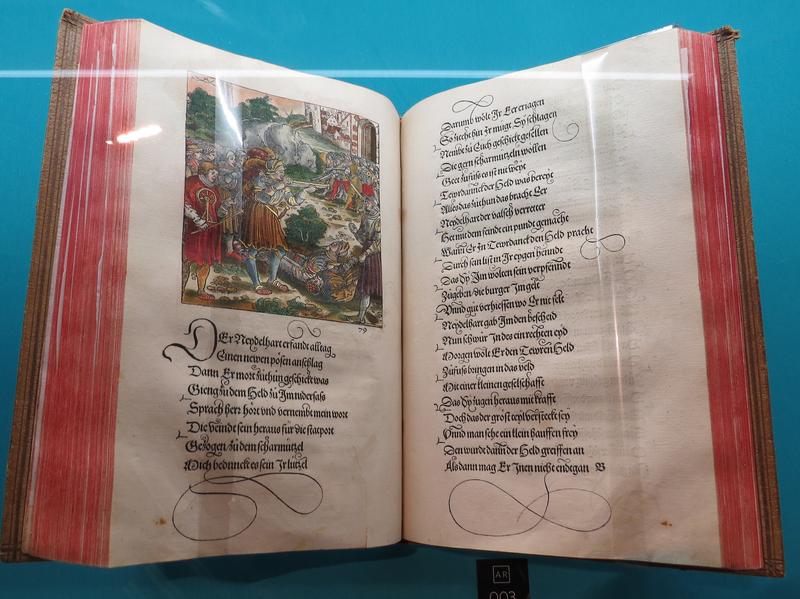 79
DEr Neydelhart erfandt alltag
Einen newen pösen anschlag
Dann Er mort zůthůn geschickt was
Gieng zů dem Held zů Im nidersaß
Sprach herr hört vnd vernembt mein wort
Die veindt sein heraus für die statport
Gezogen zů dem scharmützel
Mich beduncket es sein Ir lützel
Darumb wölt Ir Eer eriagen
So ziecht hin Ir mügt Sy schlagen
Nembt zů Euch geschickt gesellen
Die gern scharmutzeln wöllen
Geet zůfůss es ist nit weyt
Tewrdannck der Held was bereyt
Alles das zůthun das bracht Eer
Neydelhart der valsch verreter
Het mit dem feindt ein pundt gemacht
Wann Er In Tewrdanck den Held pracht
Durch sein list in Ir eygen hendt
Das Sy Im wolten sein verpfenndt
Zůgeben die burger Im gelt
Vnnd gůt verhiessen wo Er nit felt
Neydelhart gab Im den bescheid
Nun schwůr In des ein rechten eyd
Morgen wölt Er den Tewren Held
Zůfůss bringen in das veld
Mit einer kleinen geselschafft
Das Sy zugen heraus mit krafft
Doch das der groß teyl versteckt sey
Vnnd man sehe ein klein hauffen frey
Den wurde dann der Held greiffen an
Als dann mag Er Inen nicht endtgan B
AR
003